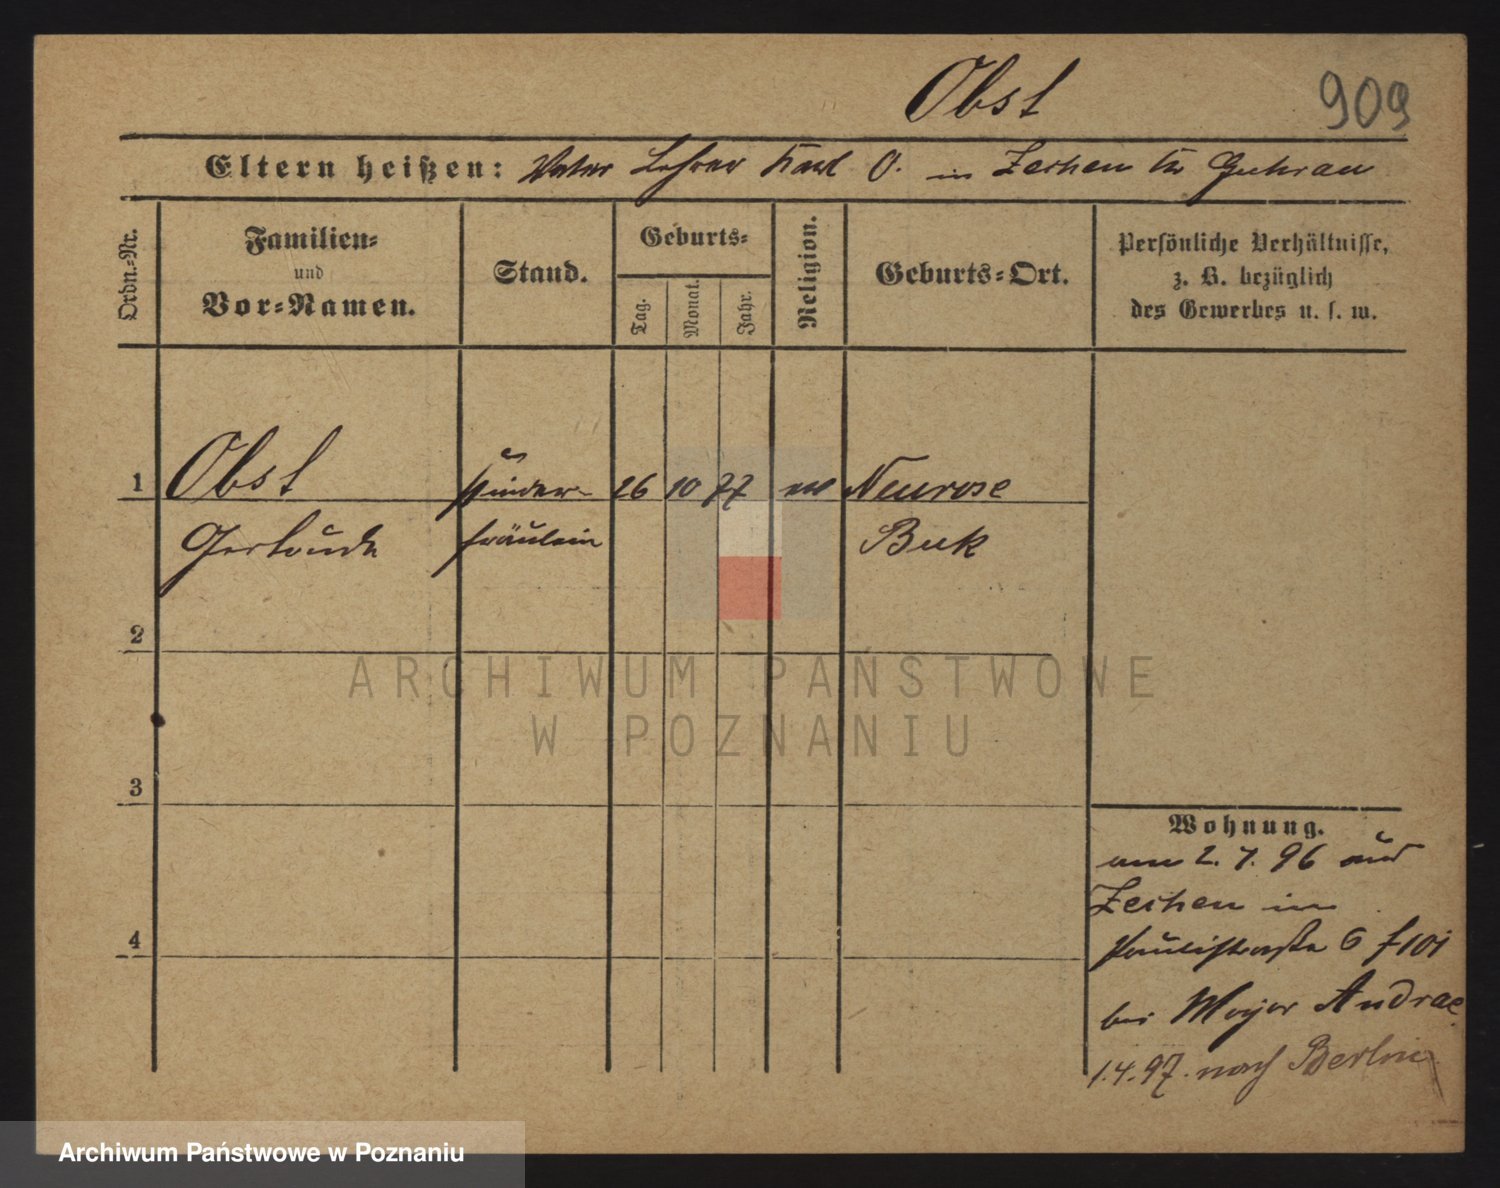 Obst
909
Eltern heißen: Vater Lehrer Karl O. in Zechen Kr Guhrau
Ordn.-Nr.
Familien-
und
Vor-Namen.
Stand.
Geburts-
Tag.
Monat.
Jahr.
Religion.
Geburts-Ort.
Persönliche Verhältnisse,
z. B. bezüglich
des Gewerbes u. s. w.
1 Obst Kinder- 26 10 77 ev Neurose
Gertrude fräulein Buk
2
3
4
Wohnung.
am 2. 7. 96 aus
Zechen in
Paulistraße 6
bei Major Andrae
1.4.97. nach Berlin
ARCHIWUM PAŃSTWOWE
W POZNANIU
Archiwum Państwowe w Poznaniu